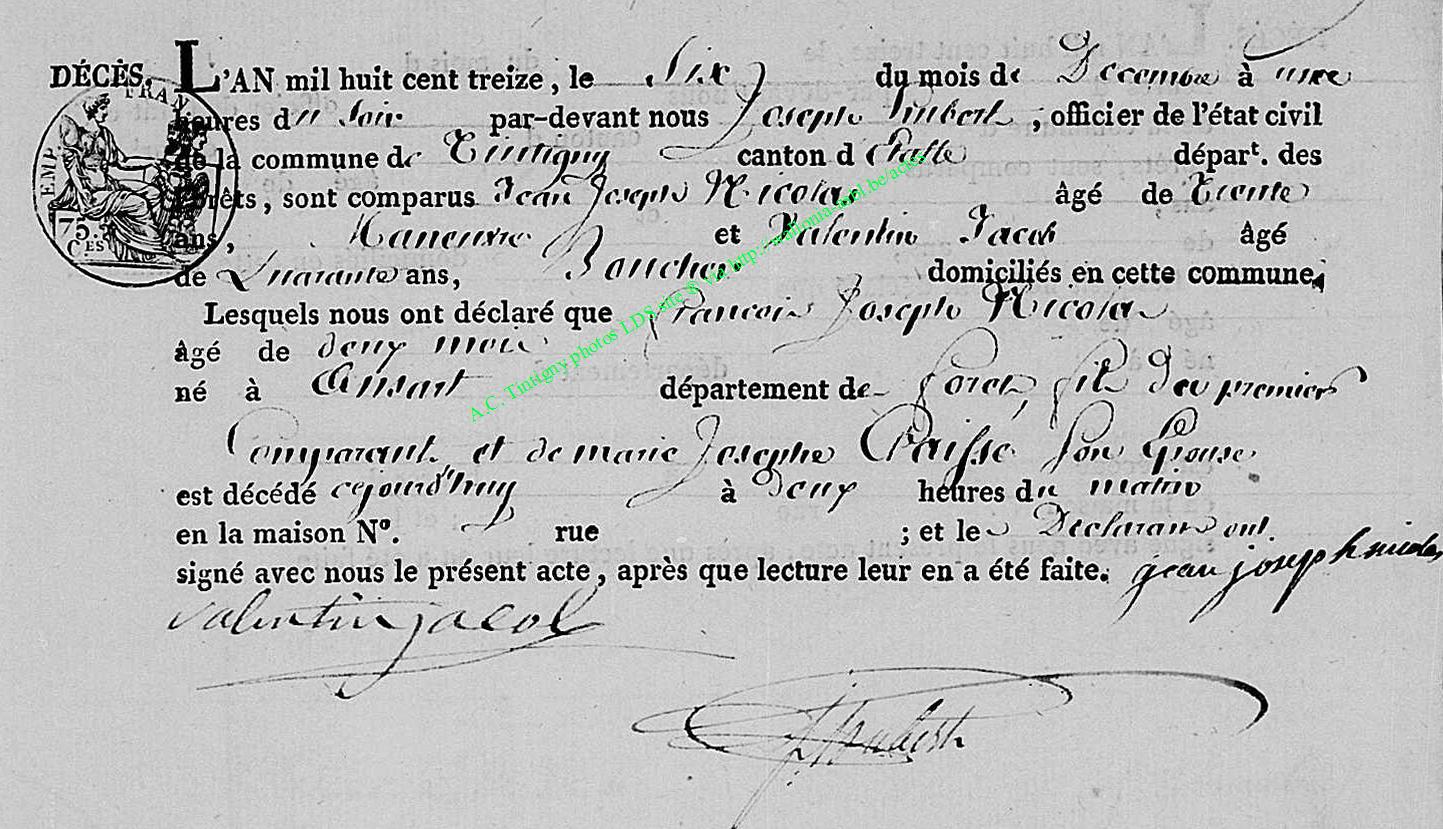 DÉCÈS. L'AN mil huit cent treize, le Six du mois de Decembre à une
heures du Soir par-devant nous Joseph , officier de l'état civil
de la commune de Tintigny canton d'Etalle départ. des
Forêts, sont comparus Jean Joseph Nicolas âgé de Trente
ans, Maneuvre et Valentin Jacob âgé
de Quarante ans, Boucher domiciliés en cette commune,
Lesquels nous ont déclaré que Francois Joseph Nicolas
âgé de deux mois
né à Ansart département de Foret, fils du premier
Comparant et de marie Josephe son Epouse
est décédé cejourd'huy à Deux heures du matin
en la maison No. rue ; et les Declarans ont
signé avec nous le présent acte, après que lecture leur en a été faite. jean joseph nicolas
valentin jacob
EMP. FRAN
75.
C.ES
A.C. Tintigny photos LDS site & via http://wallonia-asbl.be/actes